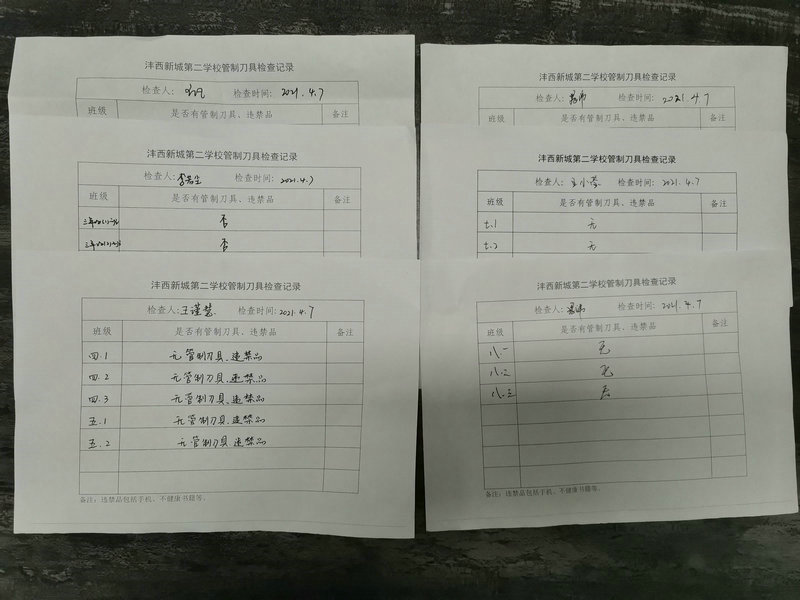 沣西新城第二学校管制刀具检查记录
检查人： 检查时间：2021.4.7
班级 是否有管制刀具、违禁品 备注
沣西新城第二学校管制刀具检查记录
检查人： 检查时间：2021.4.7
班级 是否有管制刀具、违禁品 备注
否
否
沣西新城第二学校管制刀具检查记录
检查人：王谨慧 检查时间：2021.4.7
班级 是否有管制刀具、违禁品 备注
四.1 无管制刀具、违禁品
四.2 无管制刀具、违禁品
四.3 无管制刀具、违禁品
五.1 无管制刀具、违禁品
五.2 无管制刀具、违禁品
备注：违禁品包括手机、不健康书籍等。
沣西新城第二学校管制刀具检查记录
检查人： 检查时间：2021.4.7
班级 是否有管制刀具、违禁品 备注
沣西新城第二学校管制刀具检查记录
检查人：王小蓉 检查时间：2021.4.7
班级 是否有管制刀具、违禁品 备注
七.1 无
七.2 无
沣西新城第二学校管制刀具检查记录
检查人： 检查时间：2021.4.7
班级 是否有管制刀具、违禁品 备注
八.一 无
八.二 无
八.三 无
备注：违禁品包括手机、不健康书籍等。